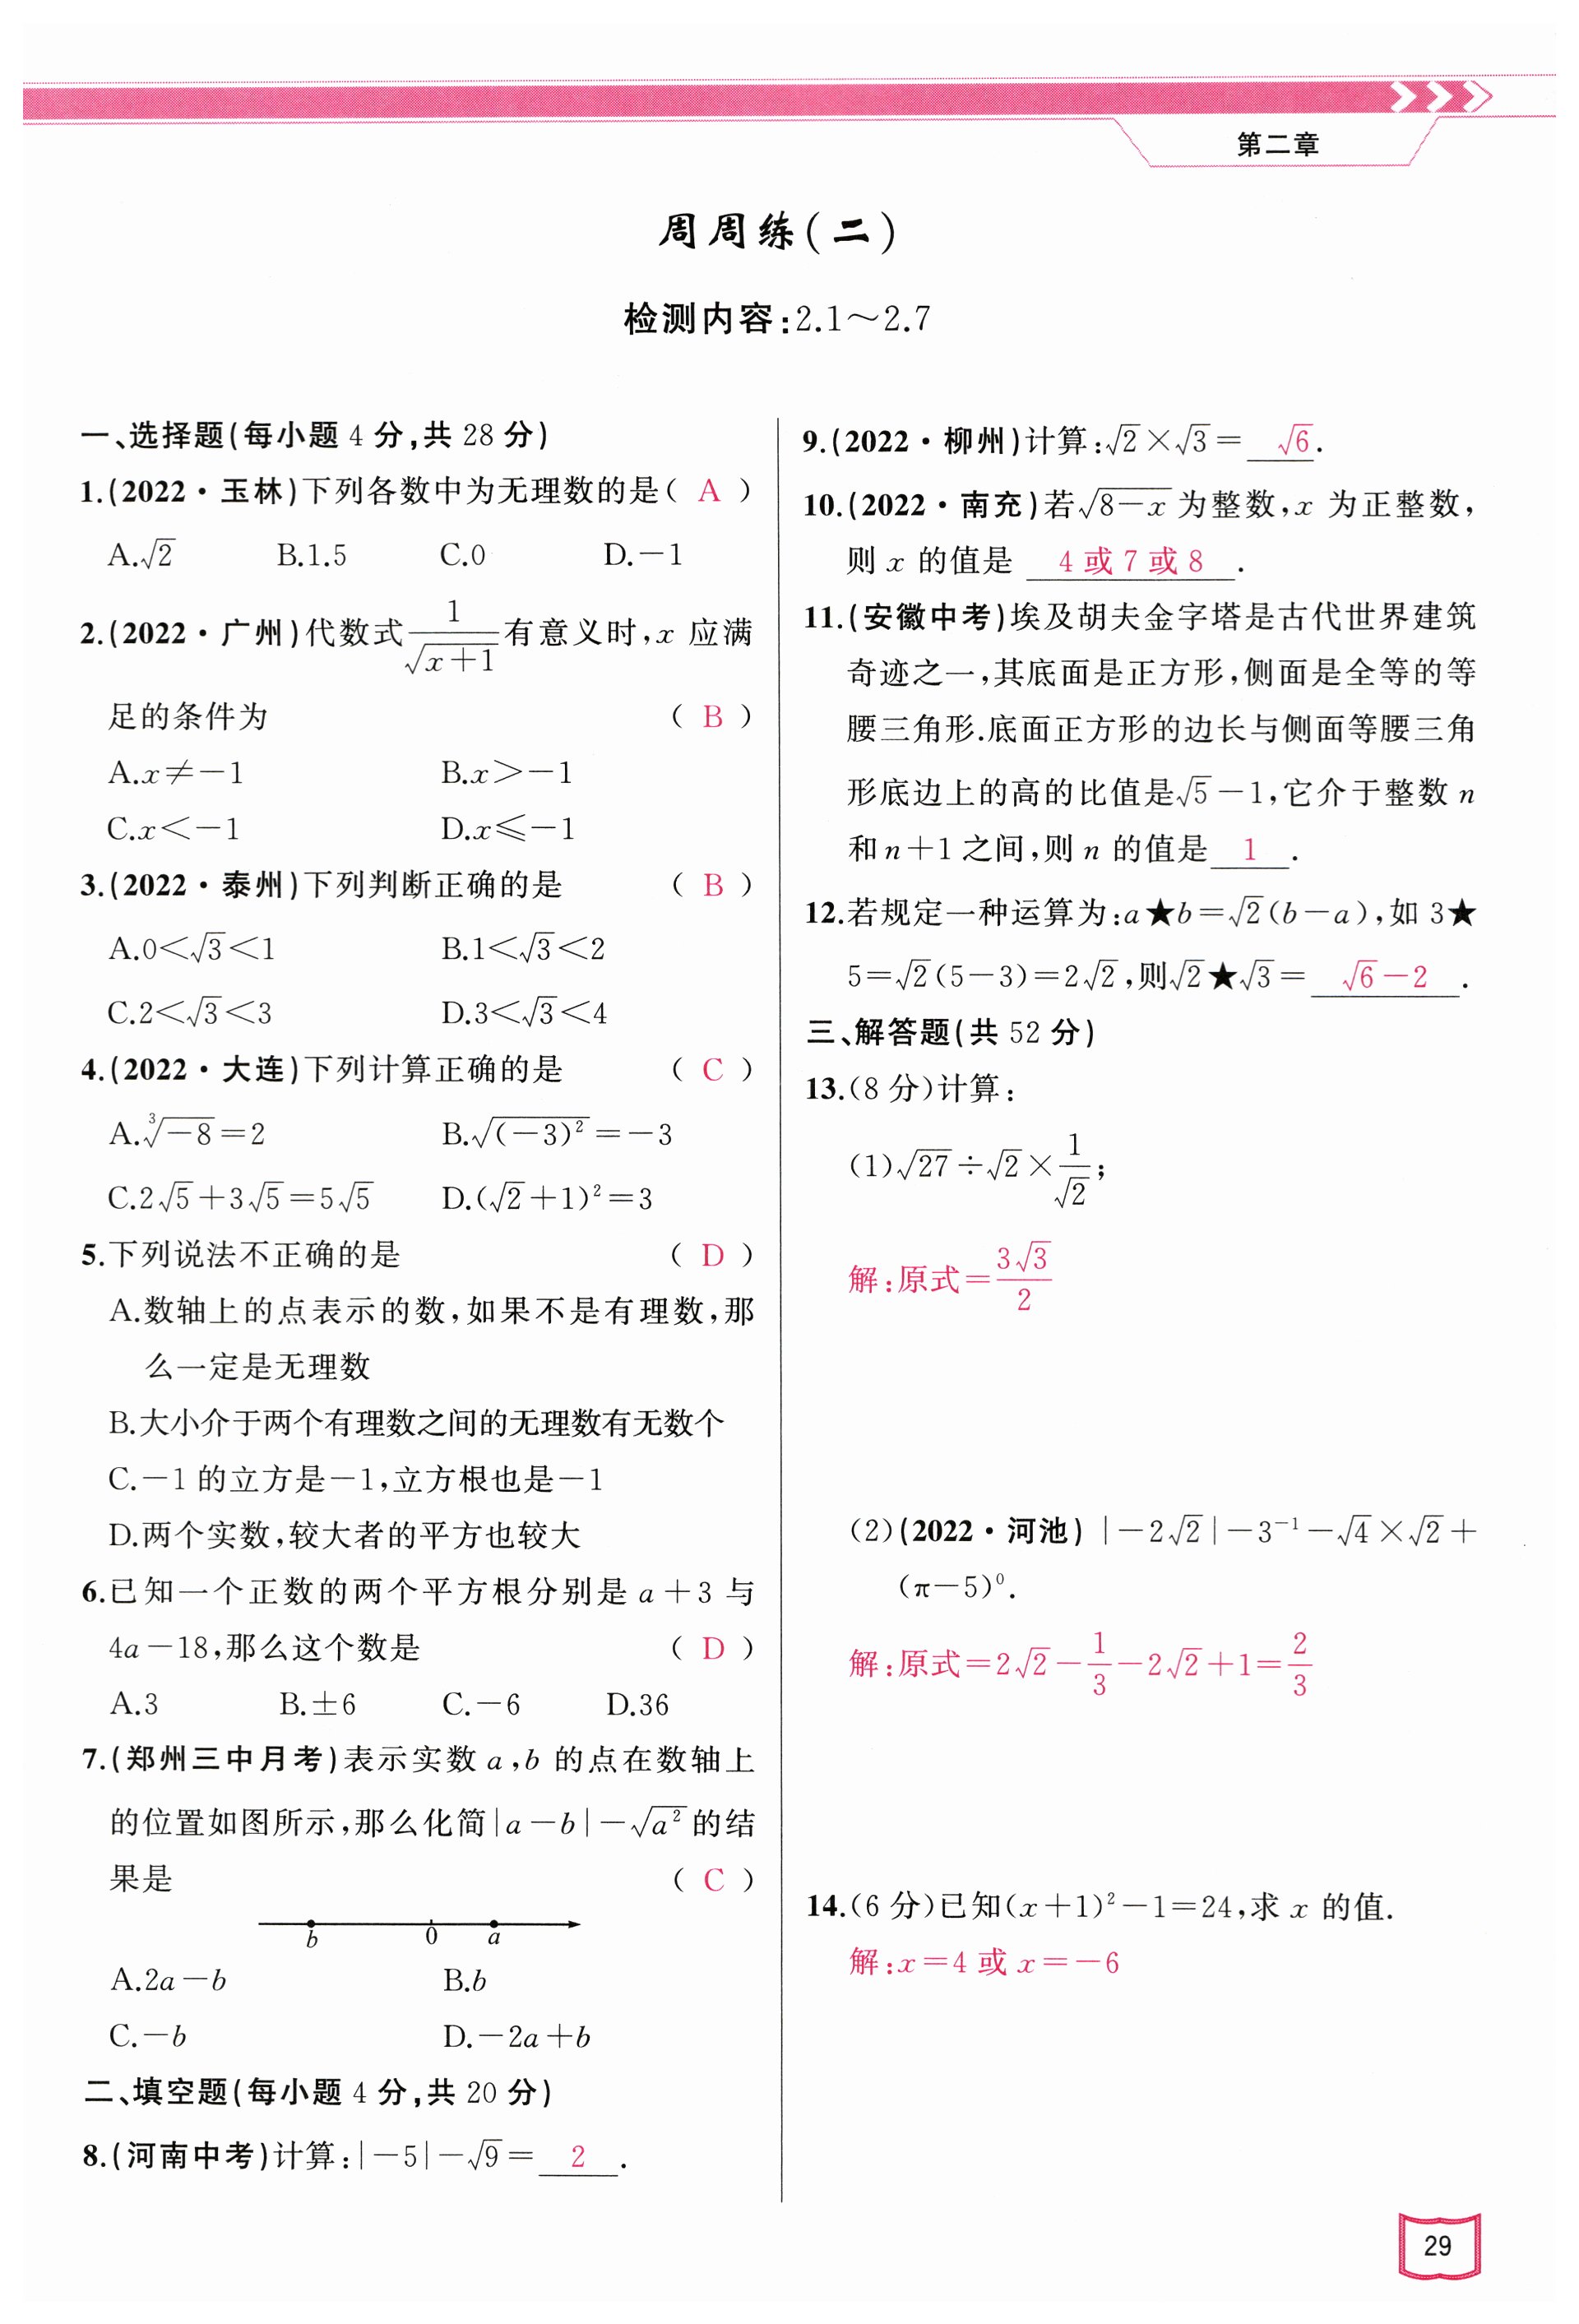 第二章
周周练(二)
检测内容:2.1～2.7
一、选择题(每小题 4 分,共 28 分)
1.(2022·玉林)下列各数中为无理数的是( A )
A.√2 B.1.5 C.0 D.－1
2.(2022·广州)代数式1/√(x＋1)有意义时,x 应满
足的条件为 ( B )
A.x≠－1 B.x＞－1
C.x＜－1 D.x≤－1
3.(2022·泰州)下列判断正确的是 ( B )
A.0＜√3＜1 B.1＜√3＜2
C.2＜√3＜3 D.3＜√3＜4
4.(2022·大连)下列计算正确的是 ( C )
A.∛(－8)＝2 B.√((－3)²)＝－3
C.2√5＋3√5＝5√5 D.(√2＋1)²＝3
5.下列说法不正确的是 ( D )
A.数轴上的点表示的数,如果不是有理数,那
么一定是无理数
B.大小介于两个有理数之间的无理数有无数个
C.－1 的立方是－1,立方根也是－1
D.两个实数,较大者的平方也较大
6.已知一个正数的两个平方根分别是 a＋3 与
4a－18,那么这个数是 ( D )
A.3 B.±6 C.－6 D.36
7.(郑州三中月考)表示实数 a,b 的点在数轴上
的位置如图所示,那么化简|a－b|－√(a²)的结
果是 ( C )
b 0 a
A.2a－b B.b
C.－b D.－2a＋b
二、填空题(每小题 4 分,共 20 分)
8.(河南中考)计算:|－5|－√9＝ 2 .
9.(2022·柳州)计算:√2×√3＝ √6 .
10.(2022·南充)若√(8－x)为整数,x 为正整数,
则 x 的值是 4 或 7 或 8 .
11.(安徽中考)埃及胡夫金字塔是古代世界建筑
奇迹之一,其底面是正方形,侧面是全等的等
腰三角形.底面正方形的边长与侧面等腰三角
形底边上的高的比值是√5－1,它介于整数 n
和 n＋1 之间,则 n 的值是 1 .
12.若规定一种运算为:a★b＝√2(b－a),如 3★
5＝√2(5－3)＝2√2,则√2★√3＝ √6－2 .
三、解答题(共 52 分)
13.(8 分)计算:
(1)√27÷√2×1/√2;
解:原式＝3√3/2
(2)(2022·河池)|－2√2|－3⁻¹－√4×√2＋
(π－5)⁰.
解:原式＝2√2－1/3－2√2＋1＝2/3
14.(6 分)已知(x＋1)²－1＝24,求 x 的值.
解:x＝4 或 x＝－6
29